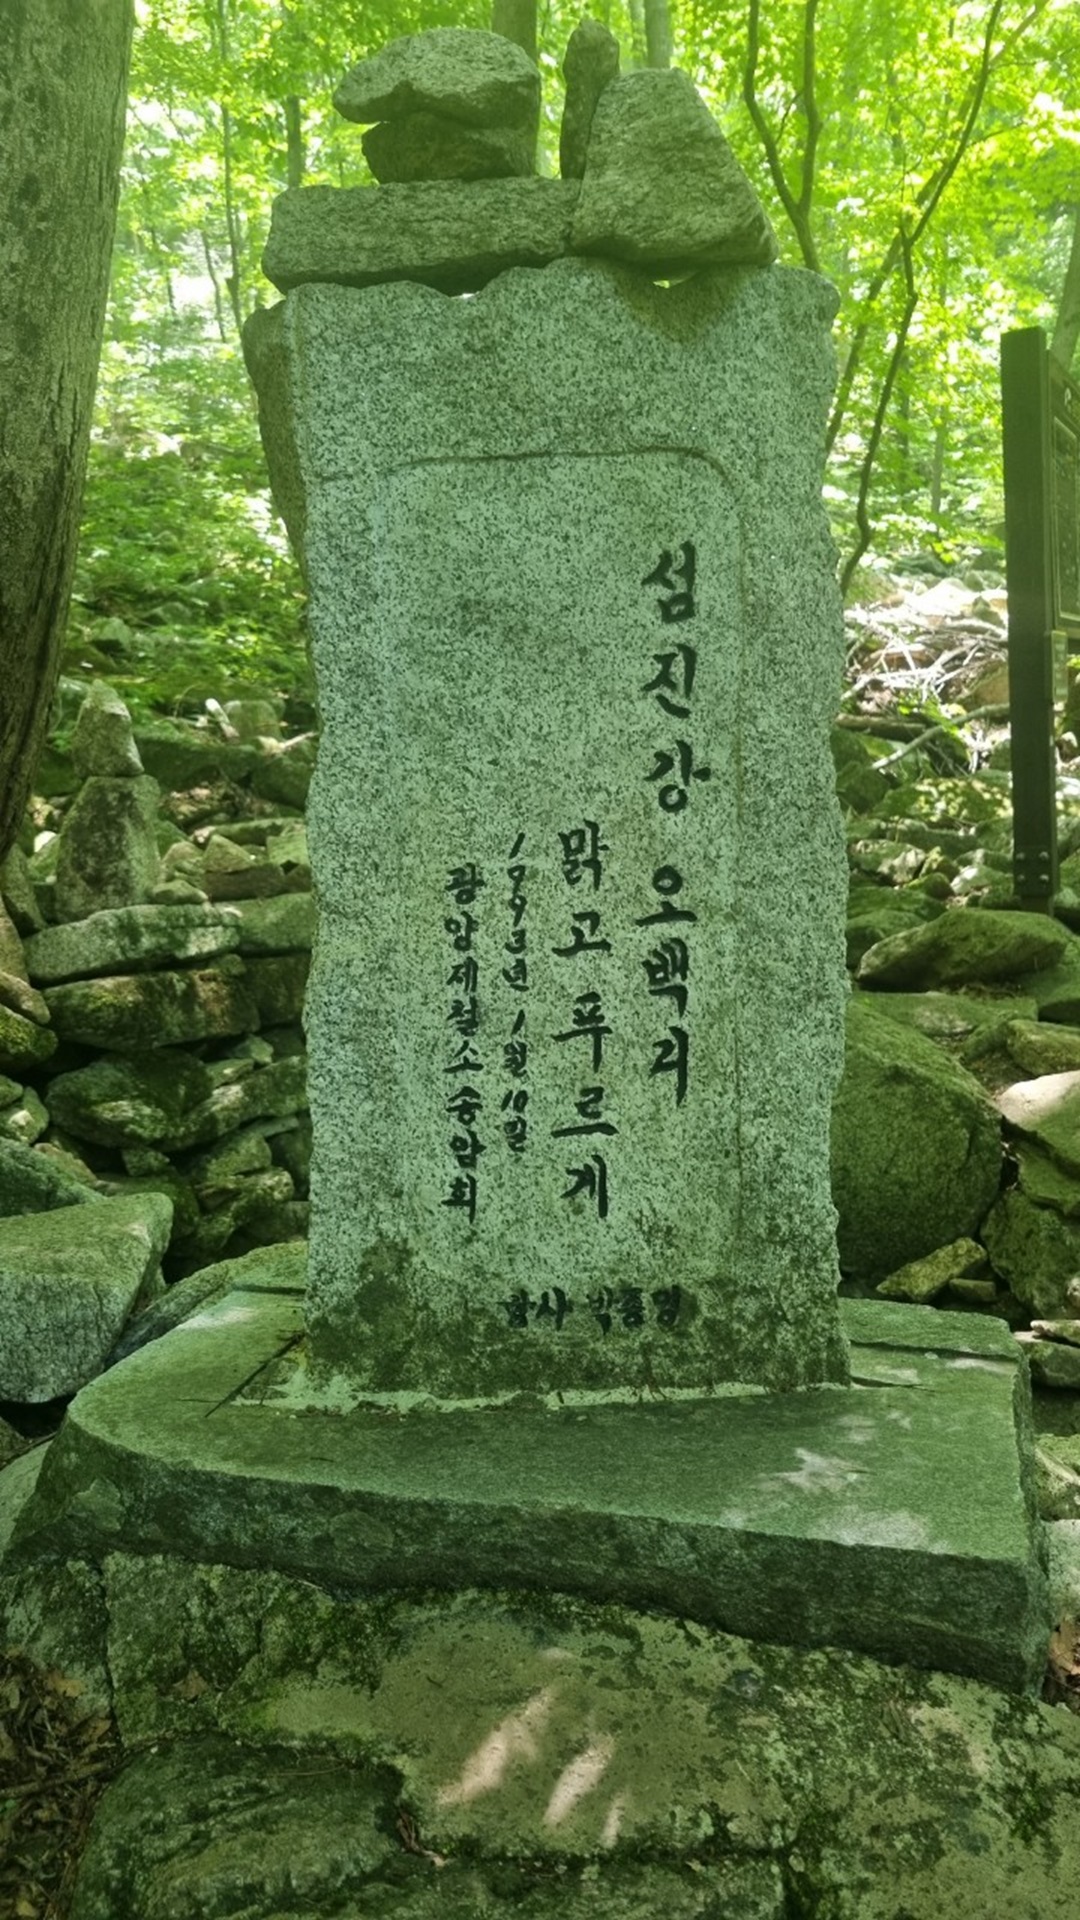 섬진강 오백리
맑고 푸르게
1993년 1월 10일
광양제철소 송암회